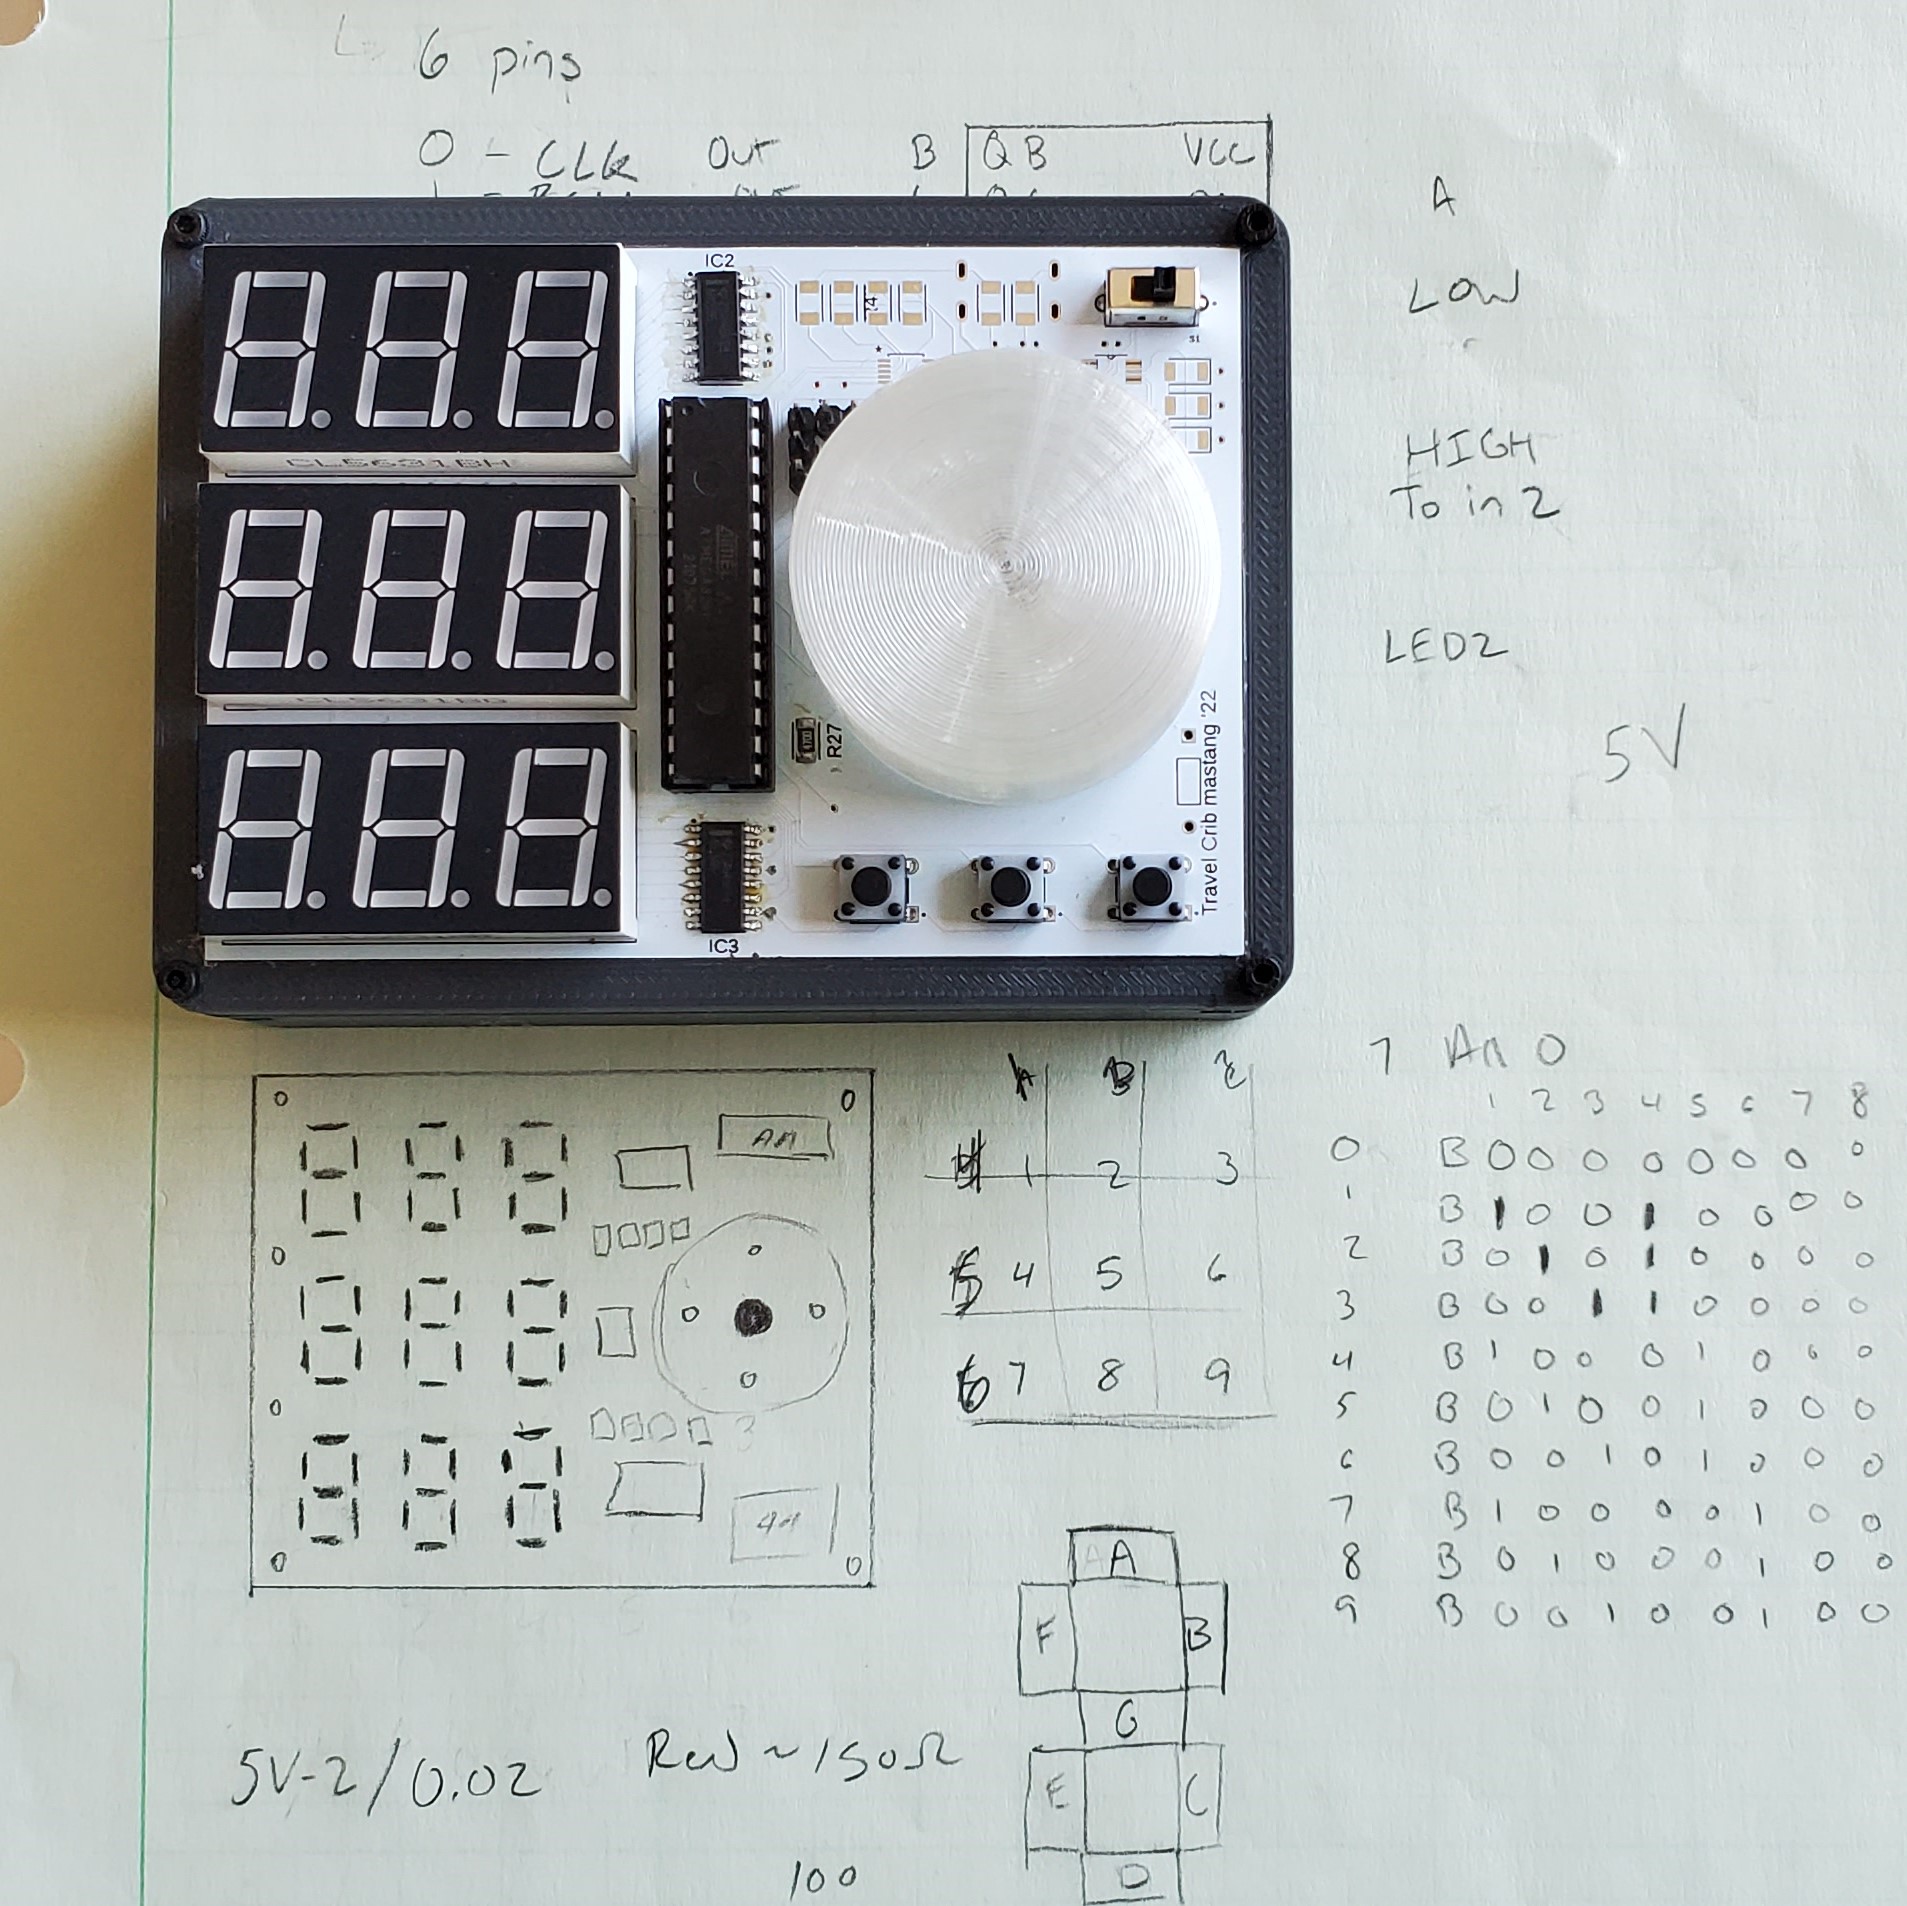 6 pins
0 - CLK Out B QB VCC
A
LOW
HIGH
To in 2
LED2
5V
IC2
S1
CL5631BH
ATMEL
R27
Travel Crib mastang '22
IC3
7 All 0
1 2 3 4 5 6 7 8
0 B 0 0 0 0 0 0 0 0
1 B 1 0 0 1 0 0 0 0
2 B 0 1 0 1 0 0 0 0
3 B 0 0 1 1 0 0 0 0
4 B 1 0 0 0 1 0 0 0
5 B 0 1 0 0 1 0 0 0
6 B 0 0 1 0 1 0 0 0
7 B 1 0 0 0 0 1 0 0
8 B 0 1 0 0 0 1 0 0
9 B 0 0 1 0 0 1 0 0
1 2 3
4 5 6
7 8 9
A
F B
G
E C
D
5V-2/0.02
Red ~150Ω
100